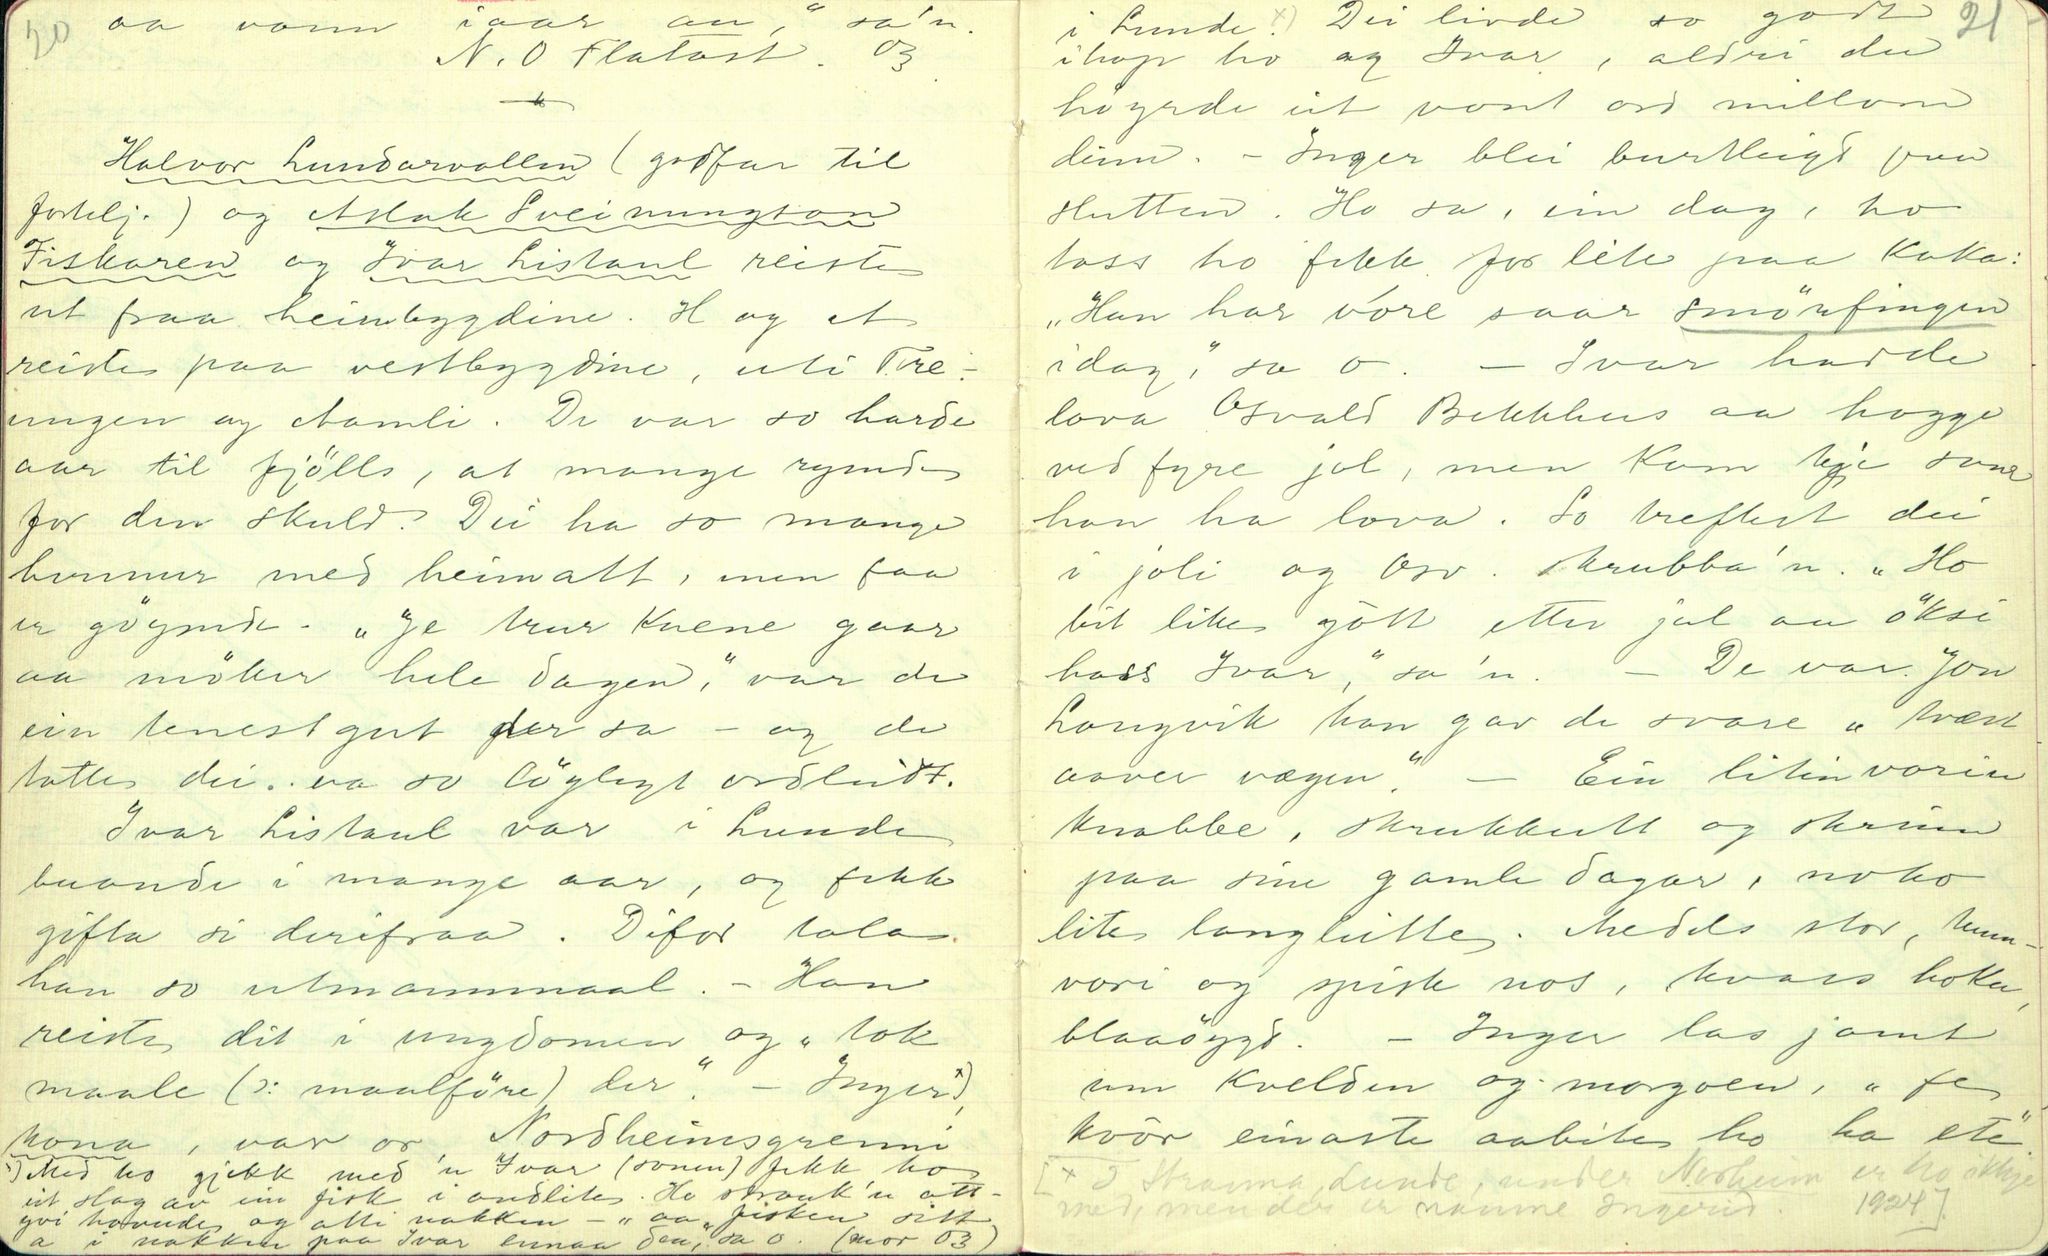 20
aa vann iaar an," sa'n.
N. O Flatast. 03
Halvor Lundarvollen (godfar til
fortelj.) og Aslak Sveinungson
Fiskaren og Ivar Listaul reiste
ut fraa heimbygdine. H og A
reiste paa vestbygdine, uti Tre-
ungen og Aamli. De var so harde
aar til fjölls, at mange rymde
for den skuld. Dei ha so mange
bunnur med heimatt, men faa
er göymde. "Je trur kuene gaar
aa möker hele dagen," var de
ein tenestgut der sa - og de
totte dei va so löglegt ordleidt.
Ivar Listaul var i Lunde
buande i mange aar, og fekk
gifta si derifraa. Difor tala
han so utmannmaal. - Han
reiste dit i ungdomen og "tok
maale (ɔ: maalföre) der". - Inger x),
kona, var or Nordheimsgrenni
x) Med ho gjekk med 'n Ivar (sonen) fekk ho
eit slag av ein fisk i andlite. Ho strauk 'n att-
yvi hovude og atti nakken - "aa fisken sitt
a i nakken paa Ivar ennaa den," sa o. (mor 03)
21
i Lunde. x) Dei livde so godt
ihop ho og Ivar, aldri du
höyrde eit vont ord millom
deim. - Inger blei burtleigd paa
slutten. Ho sa, ein dag, ho
toss ho fekk for lite paa kaka:
"Han har vóre saar smörfingen
idag," sa o. - Ivar hadde
lova Osvald Bekkhus aa hogge
ved fyre jol, men kom kje som
han ha lova. So treftest dei
i joli og Osv. skrubba'n. "Ho
bit like gott etter jol aa öksi
hass Ivar," sa'n. - De var Jon
Langvik han gav de svare "tvært
aaver vægen". - Ein liten voren
knabbe, skrukkutt og skrinn
paa sine gamle dagar, noko
lite langleitte. Medels stor, tunn-
vori og spisk nos, kvass haka,
blaaöygd. - Inger las jamt
um kvelden og morgoen, "fe
kvör einaste aabite ho ha ete"
[x I Strauma, Lunde, under Nordheim er ho ikkje
med, men der er namne Ingerid. 1924].